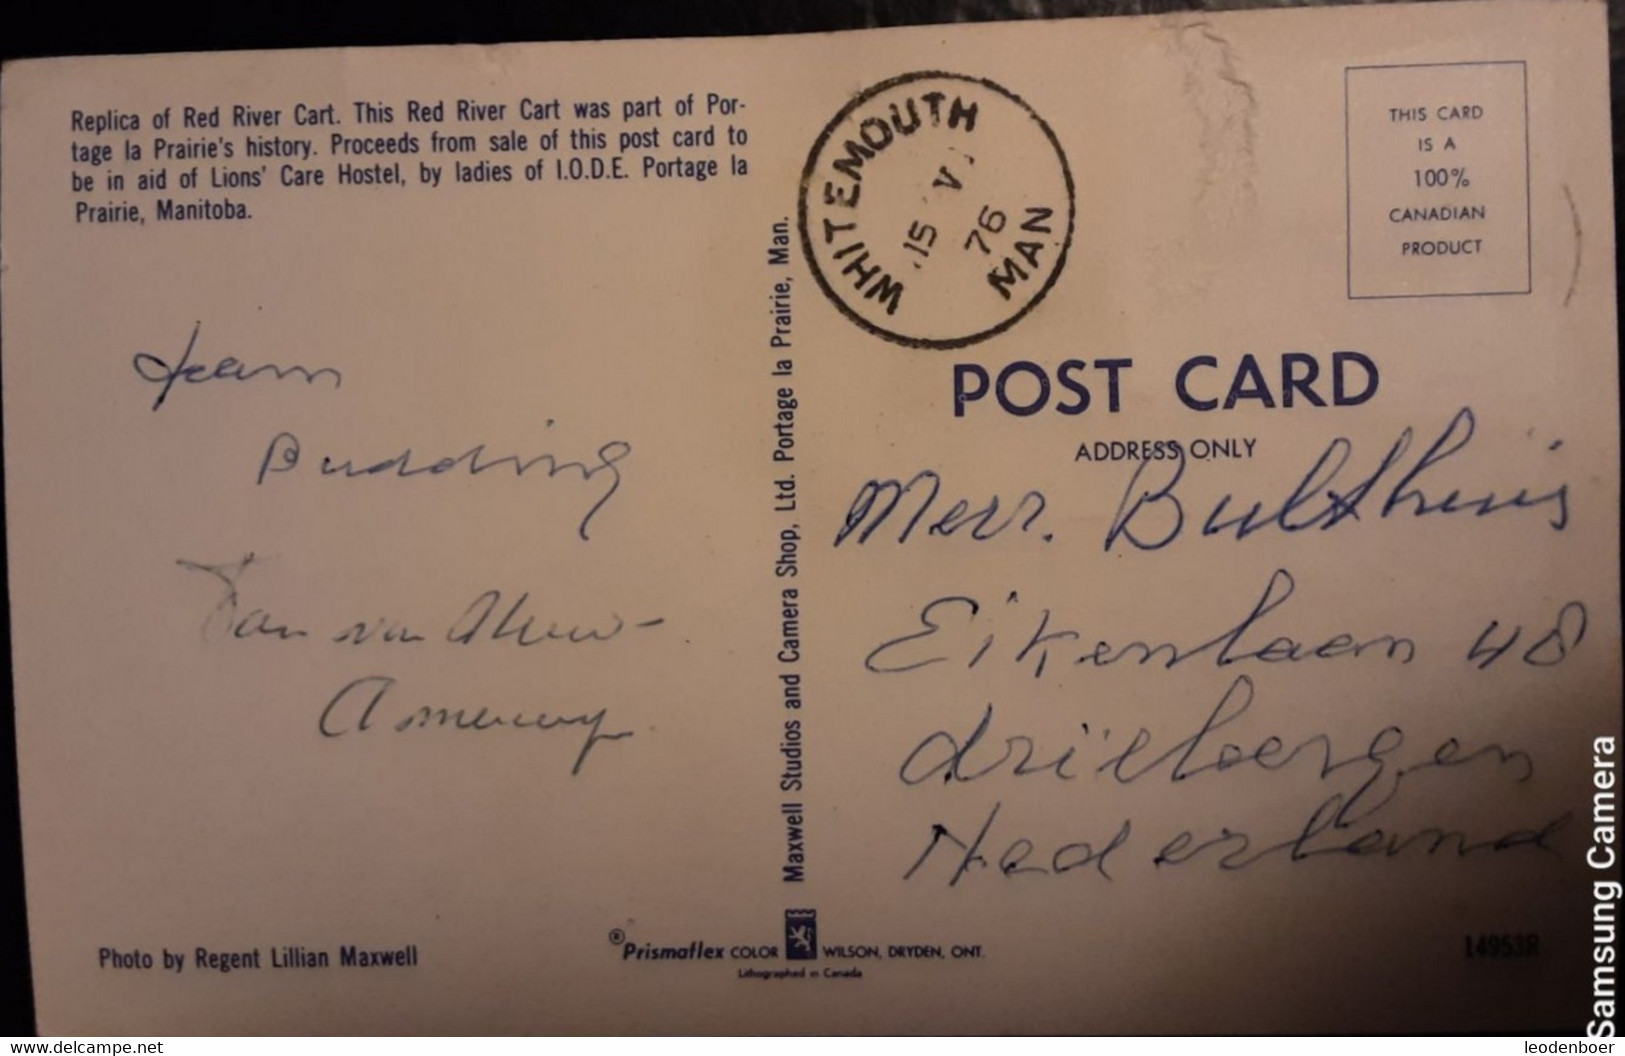 Replica of Red River Cart. This Red River Cart was part of Por-
tage la Prairie's history. Proceeds from sale of this post card to
be in aid of Lions' Care Hostel, by ladies of I.O.D.E. Portage la
Prairie, Manitoba.
Budding
van
Photo by Regent Lillian Maxwell
Maxwell Studios and Camera Shop, Ltd. Portage la Prairie, Man.
®Prismaflex COLOR WILSON, DRYDEN, ONT.
Lithographed in Canada
WHITEMOUTH
15 V
76
MAN
THIS CARD
IS A
100%
CANADIAN
PRODUCT
POST CARD
ADDRESS ONLY
Merr. Bulthuis
Eikenlaan 48
driebergen
Nederland
14953R
Samsung Camera
www.delcampe.net
leodenboer